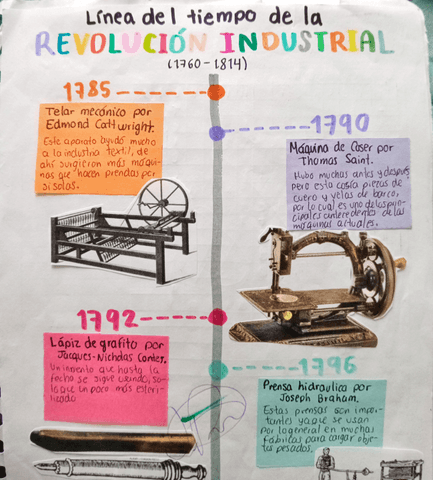 Línea del tiempo de la
REVOLUCIÓN INDUSTRIAL
(1760-1814)
1785
Telar mecónico por
Edmond Cattwright.
Este aparato ayudó mucho
a la industria textil, de
ahí surgieron más máqui-
nas que hacen prendas por
si solas.
1790
Máquina de Coser por
Thomas Saint.
Hubo muchas antes y después
pero esta cosía piezas de
cuero y velas de barco,
por lo cual es uno de los prin-
cipales antecedentes de las
máquinas actuales.
1792
Lápiz de grafito por
Jacques-Nicholas Contes.
Un invento que hasta la
fecha se sigue usando, so-
lo que un poco más
1796
Prensa hidraulica por
Joseph Braham.
Estas prensas son impor-
tantes ya que se usan
por lo general en muchas
fábricas para cargar obje-
tos pesados.